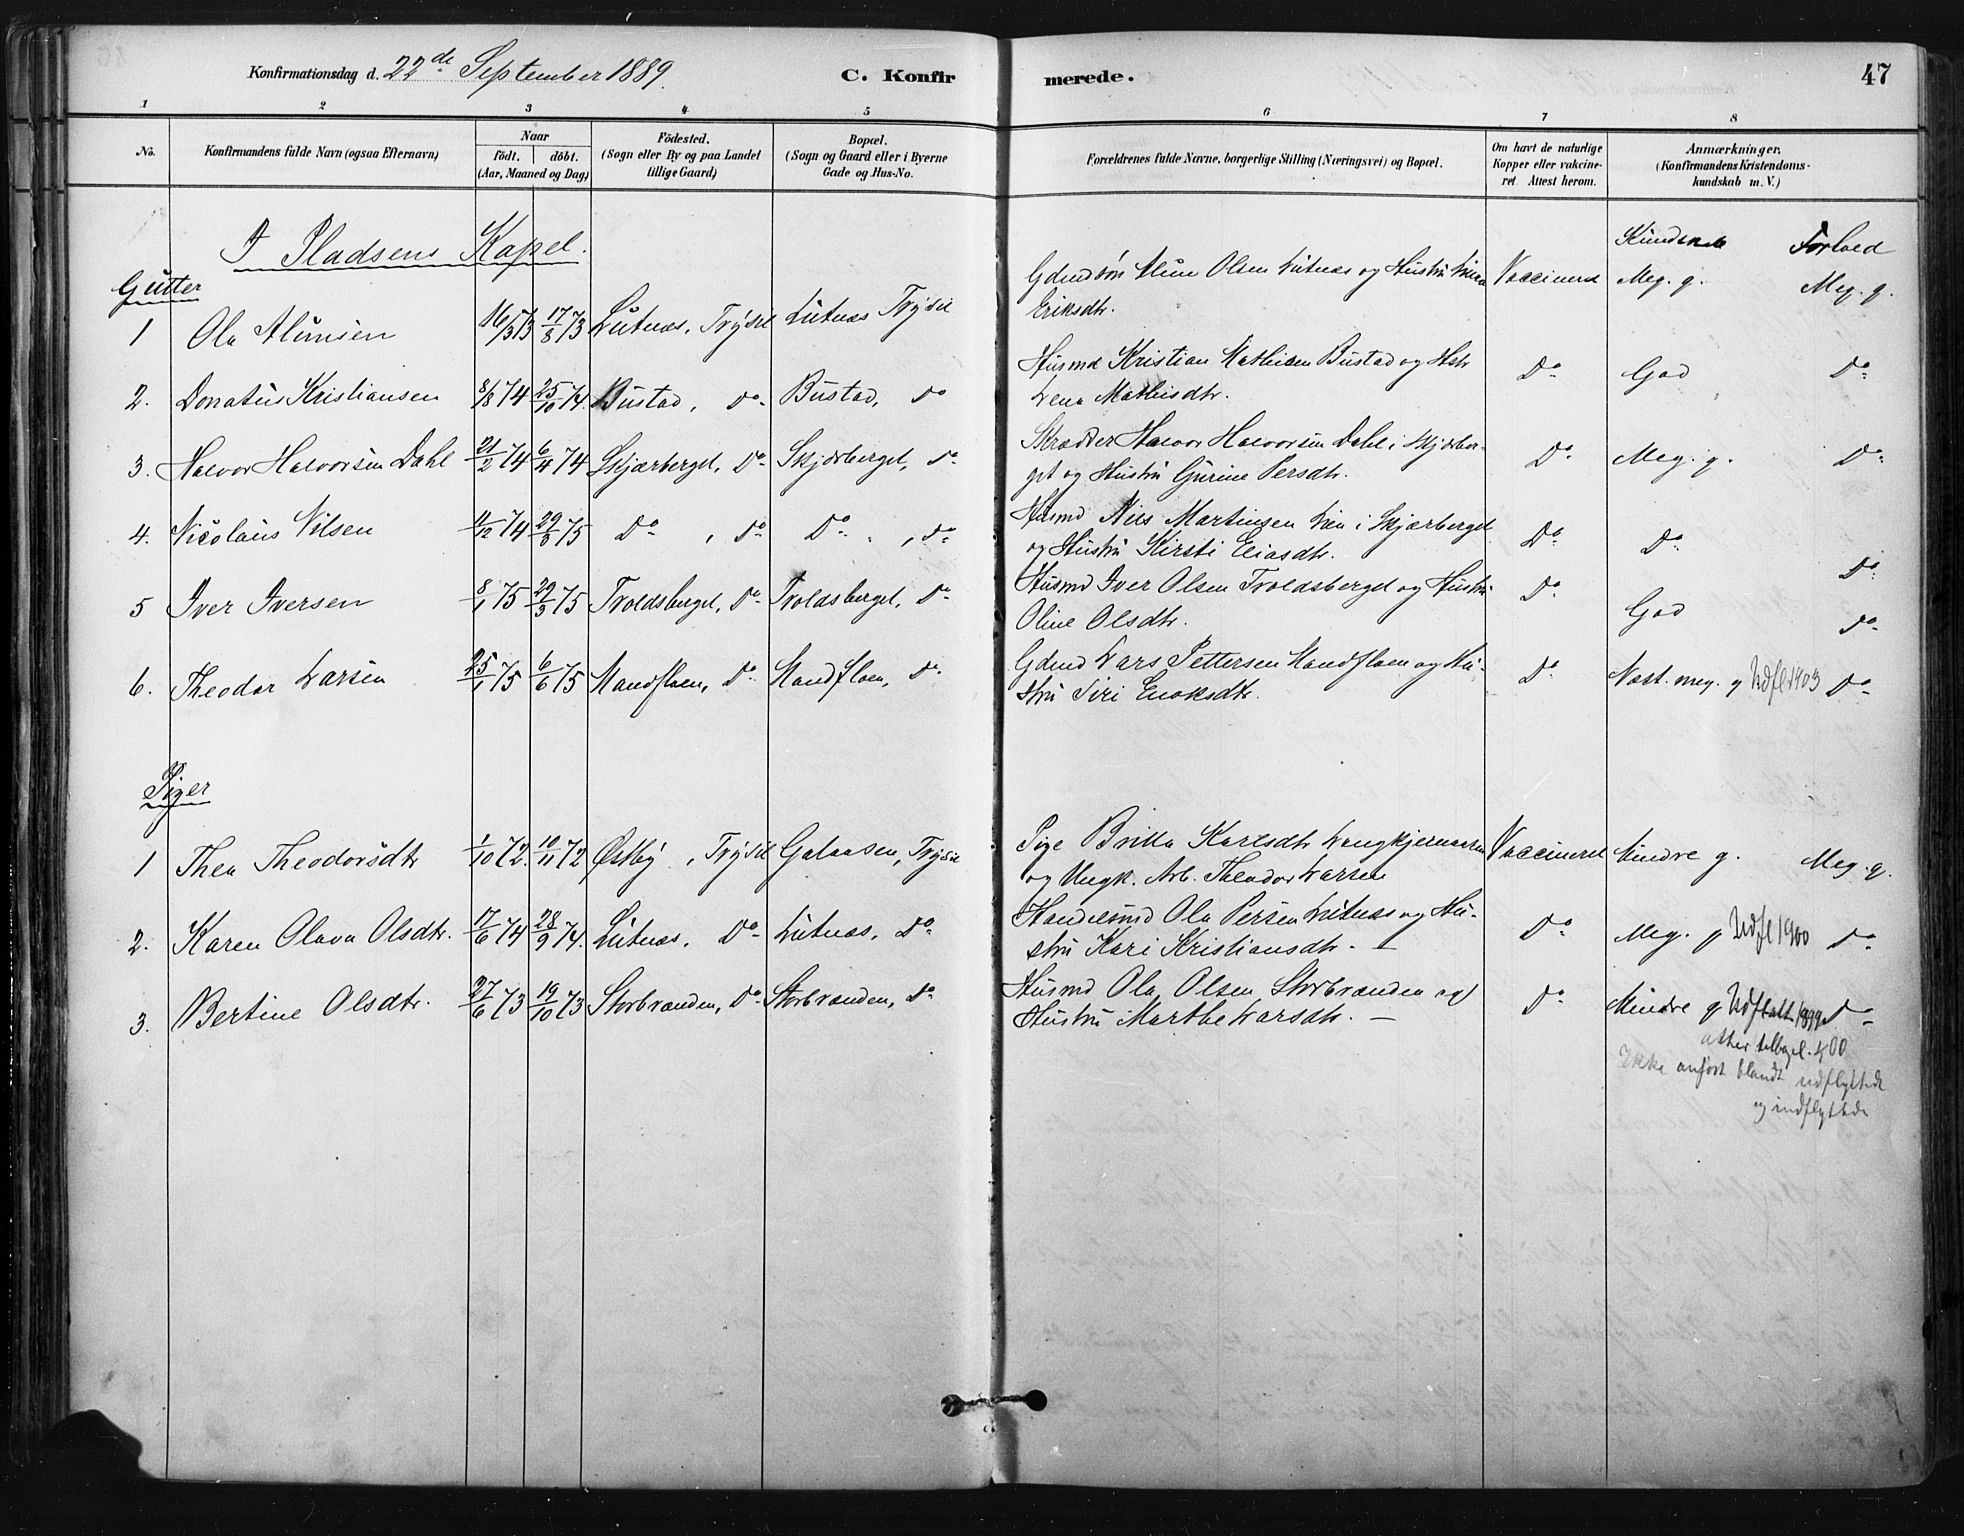 Konfirmationsdag d. 22de September 1889. C. Konfirmerede. 47
1 2 3 4 5 6 7 8
No. Konfirmandens fulde Navn (ogsaa Efternavn) Naar födt. döbt. (Aar, Maaned og Dag) Födested. (Sogn eller By og paa Landet tillige Gaard) Bopæl. (Sogn og Gaard eller i Byerne Gade og Hus-No. Forældrenes fulde Navne, borgerlige Stilling (Næringsvei) og Bopæl. Om havt de naturlige Kopper eller vakcineret. Attest herom. Anmærkninger. (Konfirmandens Kristendomskundskab m. V.)
I Pladsens Kapel.
Kundsk. Forhold
Gutter
1 Ola Alunsen 16/5 73 17/8 73 Lutnæs, Trysil Lutnæs Trysil Olsen Lutnæs og Hustru Vaccineret Meg. g. Meg. g.
Eriksdtr.
2. Donatus Kristiansen 8/8 74 25/10 74. Bustad, Do Bustad, Do Husmd Kristian Mathisen Bustad og Hstr Do God Do
Lena Mathisdtr.
3. Halvor Halvorsen Dahl 21/2 74 6/4 74 Skjærberget, Do Skjærberget, Do Skrædder Halvor Halvorsen Dahl i Skjærber- Do Meg. g. Do
get og Hustru Gurine Persdtr.
4. Nicolaus Nilsen 11/12 74 29/3 75 Do, Do Do, Do Husmd Nils Martinsen Lien i Skjærberget Do Do Do
og Hustru Kirsti Eliasdtr.
5 Iver Iversen 8/1 75 29/3 75 Troldsberget, Do Troldsberget, Do Husmd Iver Olsen Troldsberget og Hustru Do God Do
Oline Olsdtr.
6. Theodor Larsen 25/1 75 6/6 75 Mandfloen, Do Mandfloen, Do Gdmd Lars Pettersen Mandfloen og Hu- Do Næst. meg. g Udfl 1903 Do
stru Siri Enoksdtr.
Piger
1 Thea Theodorsdtr 1/10 72. 10/11 72 Østby, Trysil Galaasen, Trysil Pige Britta Karlsdtr Vaccineret Mindre g. Meg. g.
og Ungk. Arb. Theodor Larsen
2. Karen Olava Olsdtr. 17/6 74 28/9 74. Lutnæs, Do Lutnæs, Do Handelsmd Ola Persen Lutnæs og Hu- Do Meg. g Udfl 1900 Do
stru Kari Kristiansdtr. —
3. Bertine Olsdtr. 27/6 73 19/10 73 Storbrænden, Do Storbrænden, Do Husmd Ola Olsen Storbrænden og Do Mindre g Udflytt 1899 Do
Hustru Marthe Larsdtr. —
atter tilbage. 00
Ikke anført blandt udflyttede
og indflyttede